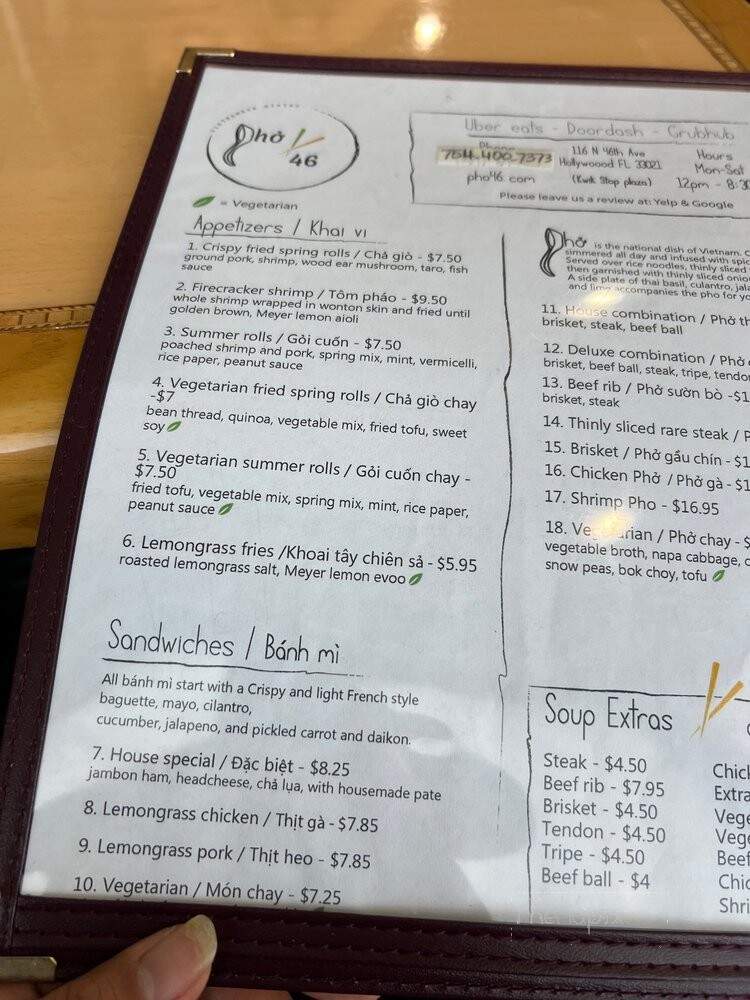 Phở
46
Uber eats - Doordash - Grubhub
Phone
754.400.7373
pho46.com
116 N 46th Ave
Hollywoood FL 33021
(Kwik Stop plaza)
Hours
Mon-Sat
12pm - 8:30
Please leave us a review at: Yelp & Google
= Vegetarian
Appetizers / Khai vị
1. Crispy fried spring rolls / Chả giò - $7.50
ground pork, shrimp, wood ear mushroom, taro, fish
sauce
2. Firecracker shrimp / Tôm pháo - $9.50
whole shrimp wrapped in wonton skin and fried until
golden brown, Meyer lemon aioli
3. Summer rolls / Gỏi cuốn - $7.50
poached shrimp and pork, spring mix, mint, vermicelli,
rice paper, peanut sauce
4. Vegetarian fried spring rolls / Chả giò chay
-$7
bean thread, quinoa, vegetable mix, fried tofu, sweet
soy
5. Vegetarian summer rolls / Gỏi cuốn chay -
$7.50
fried tofu, vegetable mix, spring mix, mint, rice paper,
peanut sauce
6. Lemongrass fries /Khoai tây chiên sả - $5.95
roasted lemongrass salt, Meyer lemon evoo
Sandwiches / Bánh mì
All bánh mì start with a Crispy and light French style
baguette, mayo, cilantro,
cucumber, jalapeno, and pickled carrot and daikon.
7. House special / Đặc biệt - $8.25
jambon ham, headcheese, chả lụa, with housemade pate
8. Lemongrass chicken / Thịt gà - $7.85
9. Lemongrass pork / Thịt heo - $7.85
10. Vegetarian / Món chay - $7.25
Phở is the national dish of Vietnam.
simmered all day and infused with
Served over rice noodles, thinly sliced
then garnished with thinly sliced
A side plate of thai basil, culantro,
and lime accompanies the pho for
11. House combination / Phở
brisket, steak, beef ball
12. Deluxe combination / Phở
brisket, beef ball, steak, tripe,
13. Beef rib / Phở sườn bò -$1
brisket, steak
14. Thinly sliced rare steak /
15. Brisket / Phở gầu chín - $1
16. Chicken Phở / Phở gà - $1
17. Shrimp Pho - $16.95
18. Vegetarian / Phở chay - $
vegetable broth, napa cabbage,
snow peas, bok choy, tofu
Soup Extras
Steak - $4.50
Beef rib - $7.95
Brisket - $4.50
Tendon - $4.50
Tripe - $4.50
Beef ball - $4
Extra
Beef